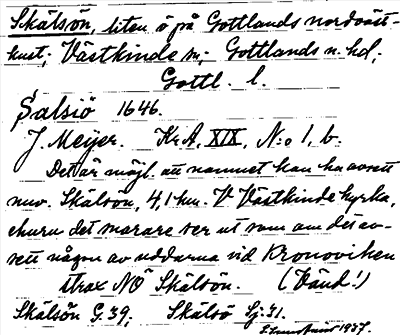 Skälsön, liten ö på Gottlands nordväst-
kust; Västkinde sn; Gottlands n. hd;
Gottl. l.
Salsiö 1646.
J. Meijer. Kr A, XIX, N:o 1, b.
Det är möjl. att namnet kan ha avsett
nuv. Skälsön, 4,1 km. V Västkinde kyrka,
ehuru det snarare ser ut som om det av-
sett någon av uddarna vid Kronoviken
strax NÖ Skälsön. (Vänd!)
Skälsön G. 39; Skälsö Sj: 31.
1937.